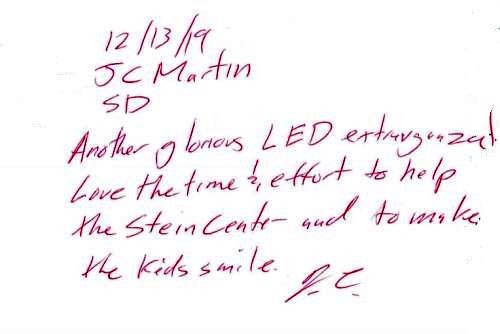 12/13/19
JC Martin
SD
Another glorious LED extravganza!
Love the time & effort to help
the Stein Center and to make
the kids smile.
J.C.